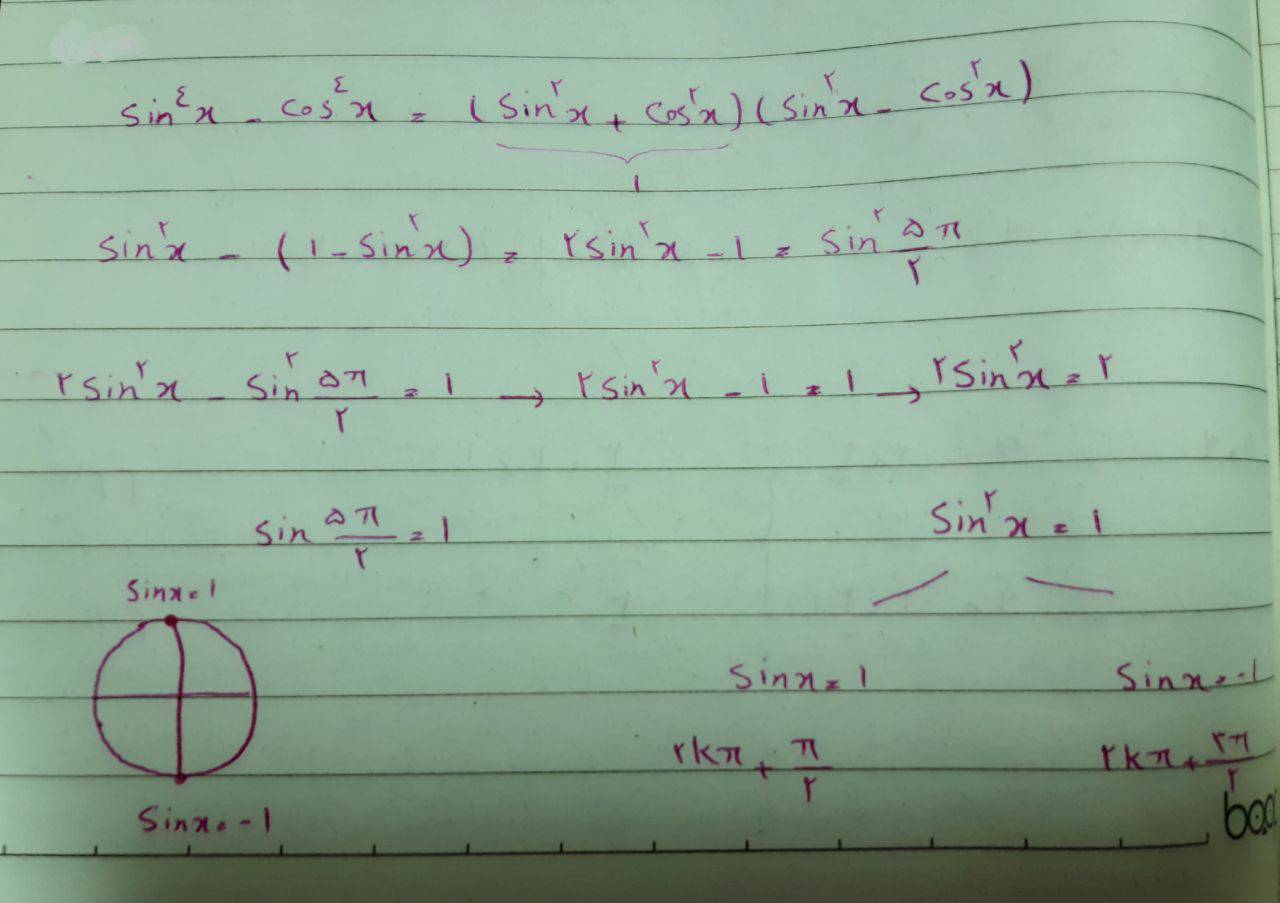 sin^٤ x - cos^٤ x = (sin^۲ x + cos^۲ x)(sin^۲ x - cos^۲ x)
۱
sin^۲ x - (۱ - sin^۲ x) = ۲sin^۲ x - ۱ = sin^۲ ۵π/۲
۲sin^۲ x - sin^۲ ۵π/۲ = ۱ → ۲sin^۲ x - ۱ = ۱ → ۲sin^۲ x = ۲
sin ۵π/۲ = ۱    sin^۲ x = ۱
sinx = ۱
sinx = ۱    sinx = -۱
۲kπ + π/۲    ۲kπ + ۳π/۲
sinx = -۱